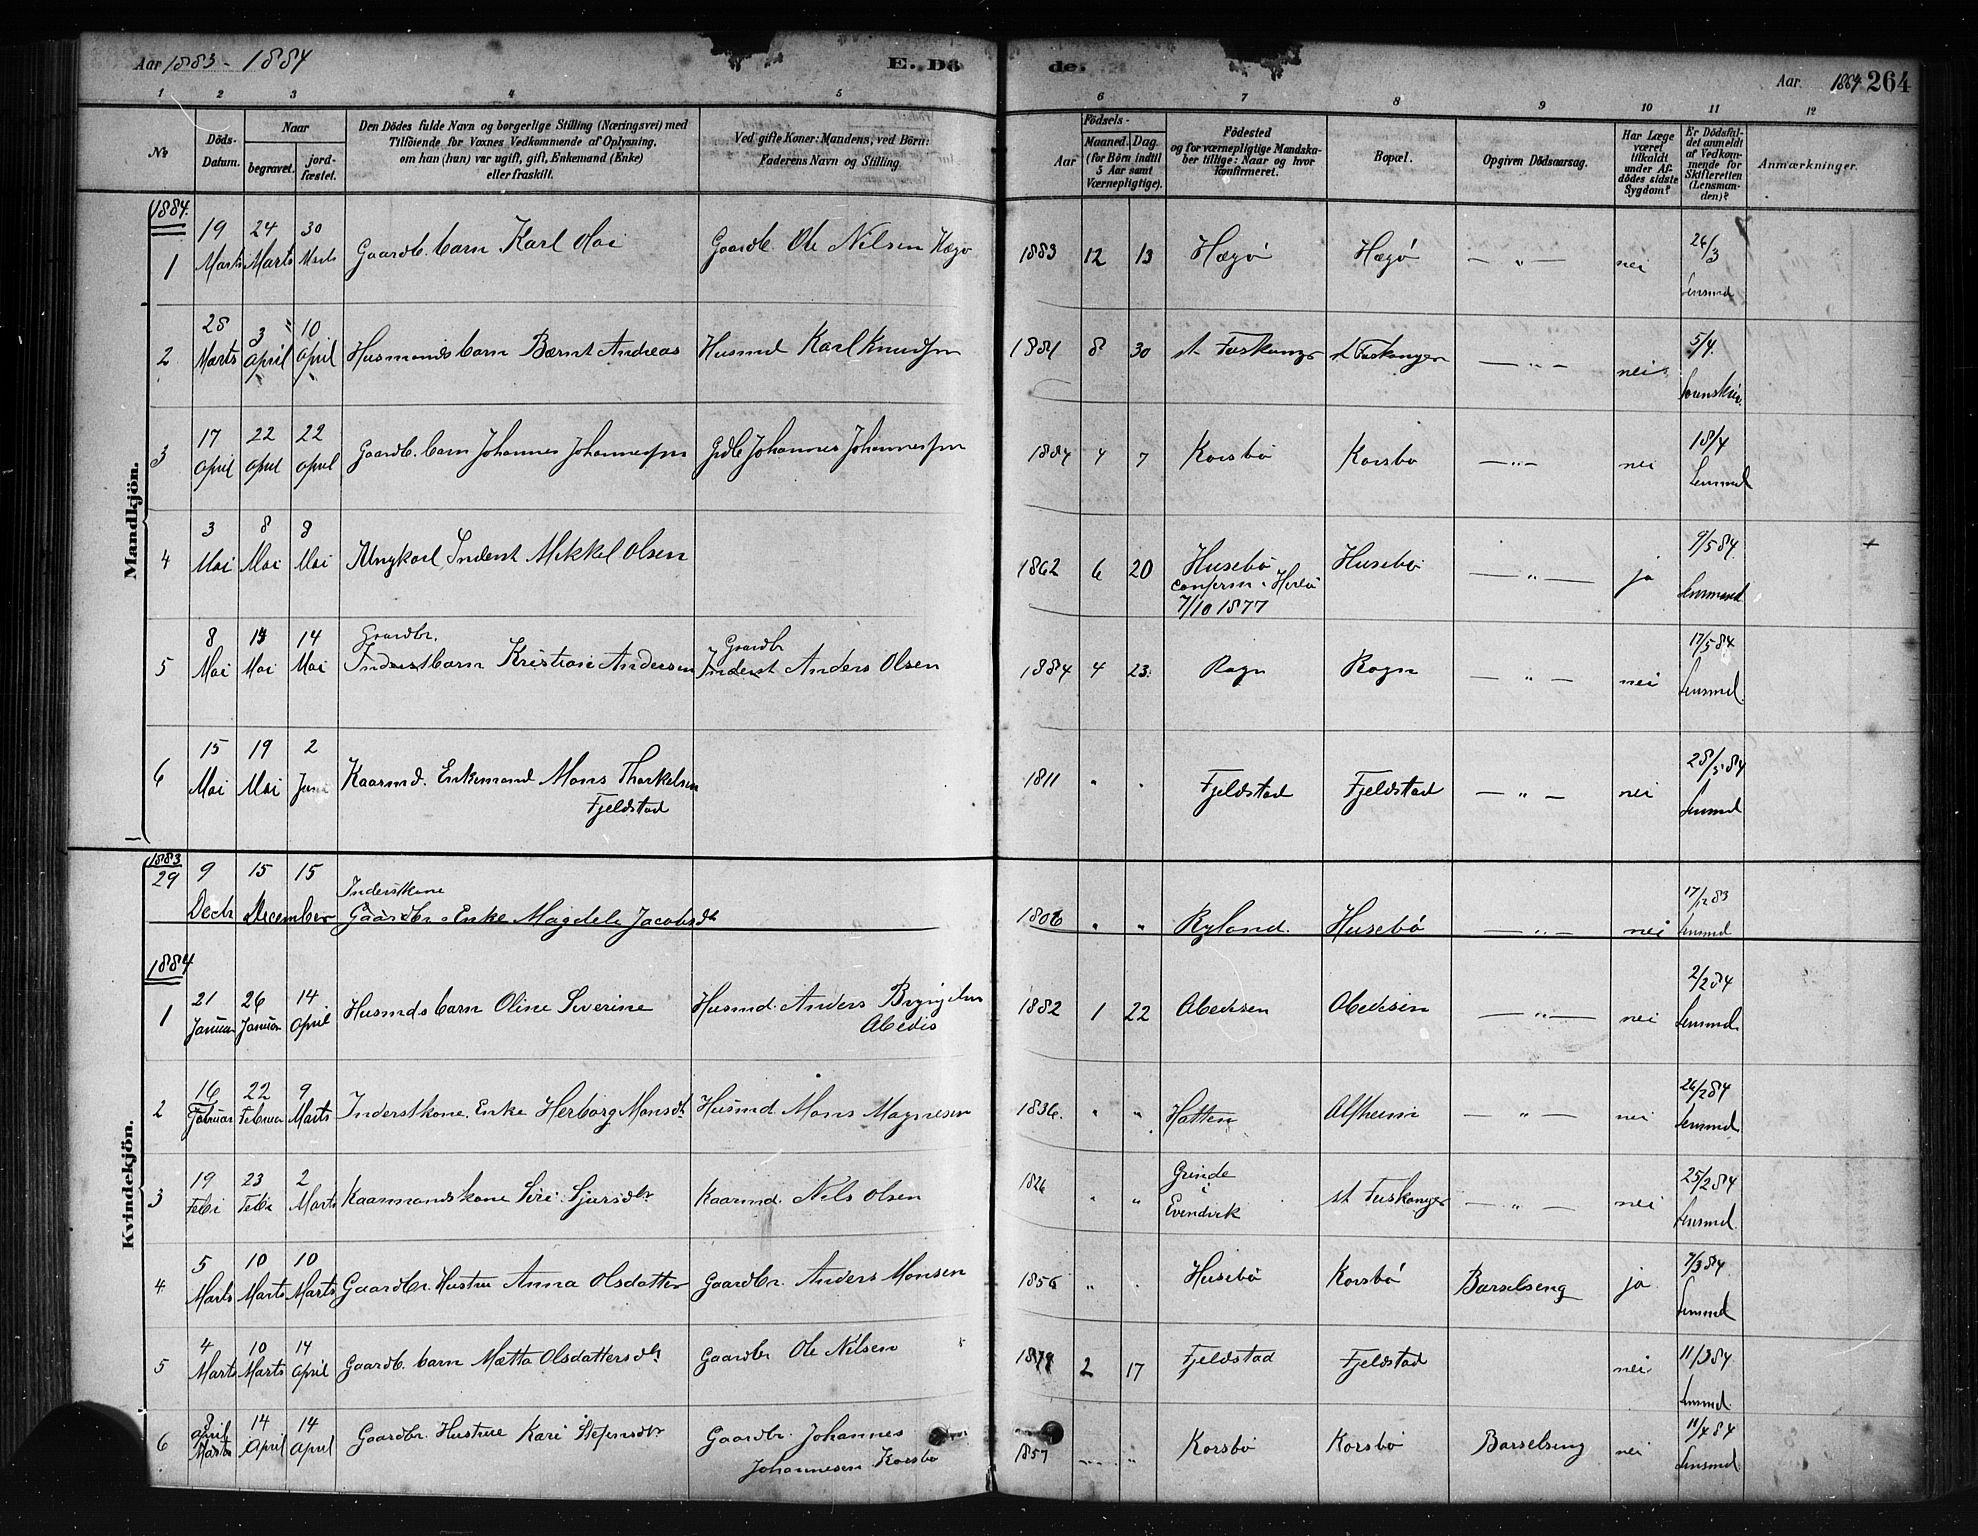 Aar 1883-1884
E. Dö de.
Aar. 1884 264
1 2 3 4 5 6 7 8 9 10 11 12
No
Döds-Datum.
Naar
begravet.
jord-fæstet.
Den Dödes fulde Navn og borgerlige Stilling (Næringsvei) med
Tilföiende for Voxnes Vedkommende af Oplysning,
om han (hun) var ugift, gift, Enkemand (Enke)
eller fraskilt.
Ved gifte Koner: Mandens; ved Börn:
Faderens Navn og Stilling.
Födsels-
Aar
Maaned. Dag.
(for Börn indtil
5 Aar samt
Værnepligtige).
Födested
og for værnepligtige Mandska-
ber tillige: Naar og hvor
konfirmeret.
Bopæl.
Opgiven Dödsaarsag.
Har Læge
været
tilkaldt
under Af-
dödes sidste
Sygdom?
Er Dödsfal-
det anmeldt
af Vedkom-
mende for
Skifteretten
(Lensman-
den)?
Anmærkninger.
Mandkjön.
1884.
1 19 Marts 24 Marts 30 Marts Gaardb. barn Karl Gaardb. Ole Nilsen Hægø 1883 12 13 Hægø Hægø — „ — nei 26/3 Lensmd
2 28 Marts 3 April 10 April Husmandsbarn Bærnt Andreas Husmd Karl Knudsen 1881 8 30 st Fuskanger st Fuskanger — „ — nei 5/4.
3 17 April 22 April 22 April Gaardb. barn Johannes Johannessen Grdb Johannes Johannessen 1884 4 7 Korsbø Korsbø — „ — nei 18/4 Lensmd
4 3 Mai 8 Mai 8 Mai Ungkarl, Inderst Mikkel Olsen 1862 6 20 Husebø
confirm. i Herlø
7/10 1877
Husebø — „ — ja 9/5 84. Lensmand +
5 8 Mai 14 Mai 14 Mai Gaardbr.
Inderstbarn Kristian Andersen Gaardbr
Inderst Anders Olsen 1884 4 23. Rogn Rogn — „ — nei 17/5 84 Lensmd.
6 15 Mai 19 Mai 2 Juni Kaarmd. Enkemand Mons Thorkelsen
Fjeldstad 1811 „ „ Fjeldstad Fjeldstad — „ — nei 28/5 84 Lensmd
Kvindekjön.
1883
29 9 Decbr 15 December 15 Inderstkone
Gaardbr. Enke Magdeli Jacobsdt 1806 „ „ Ryland. Husebø — „ — nei 17/12 83 Lensmd
1884
1 21 Januar 26 Januar 14 April Husmdsbarn Oline Severine Husmd. Anders
Abedis 1882 1 22 Abedisen Abedisen — „ — nei 2/2 84 Lensmd.
2 16 Februar 22 Februar 9 Marts Inderstkone, Enke Herborg Monsdt Husmd Mons Magnesen 1836. „ „ Hatten Alfheim — „ — nei 26/2 84 Lensmd.
3 19 Febr 23 Febr 2 Marts Kaarmandskone Siri Sjursdtr Kaarmd. Nils Olsen 1826 „ „ Grinde
i
Evendvik st Fuskanger — „ — nei 25/2 84 Lensmd.
4 5 Marts 10 Marts 10 Marts Gaardbr. Hustru Anna Olsdatter Gaardbr. Anders Monsen 1856 „ „ Husebø Korsbø Barselseng ja 7/3 84. Lensmd
5 4 Marts 10 Marts 14 April Gaardb. barn Mætta Olsdattersdtr Gaardbr Ole Nilsen 1879 2 17 Fjeldstad Fjeldstad nei 11/3 84 Lensmd
6 8 April
Marts 14 April 14 April Gaardbr. Hustrue Kari Stefensdtr Gaardbr. Johannes
Johannesen Korsbø 1857 „ „ Korsbø Korsbø Barselseng nei 11/4 84 Lensmd